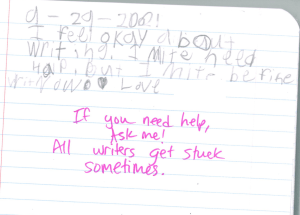 9-29-200?!
I feel okay about
writing. I mite need
help, but I mite be fine
Love
If you need help,
Ask me!
All writers get stuck
sometimes.